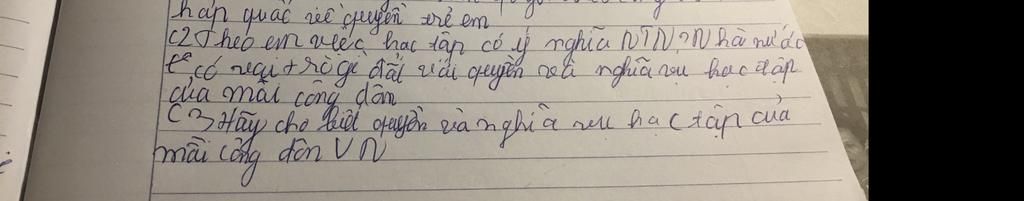 hợp quốc về quyền trẻ em
C2 Theo em việc học tập có ý nghĩa NTN? Nhà nước
có vai trò gì đối với quyền và nghĩa vụ học tập
của mỗi công dân
C3 Hãy cho biết quyền và nghĩa vụ học tập của
mỗi công dân VN